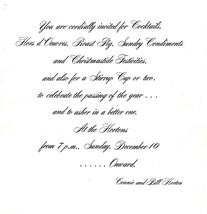 You are cordially invited for Cocktails,
Hors d'Ouvres, Roast Pig, Sunday Condiments
and Christmastide Festivities,
and also for a Stirrup Cup or two,
to celebrate the passing of the year . . .
and to usher in a better one.
At the Hortons
from 7 p.m., Sunday, December 10
. . . . . . Onward.
Connie and Bill Horton